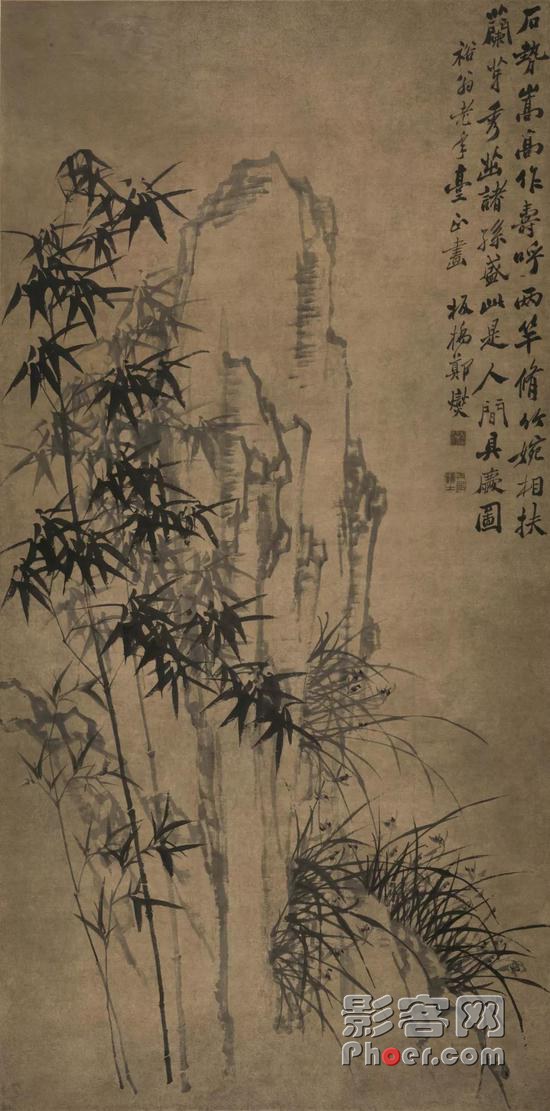 石勢嵩高作壽呼兩竿脩竹婉相扶
蘭芽秀茁諸孫盛此是人間具慶圖
裕翁老年臺正畫 板橋鄭燮
影客网
Phoer.com